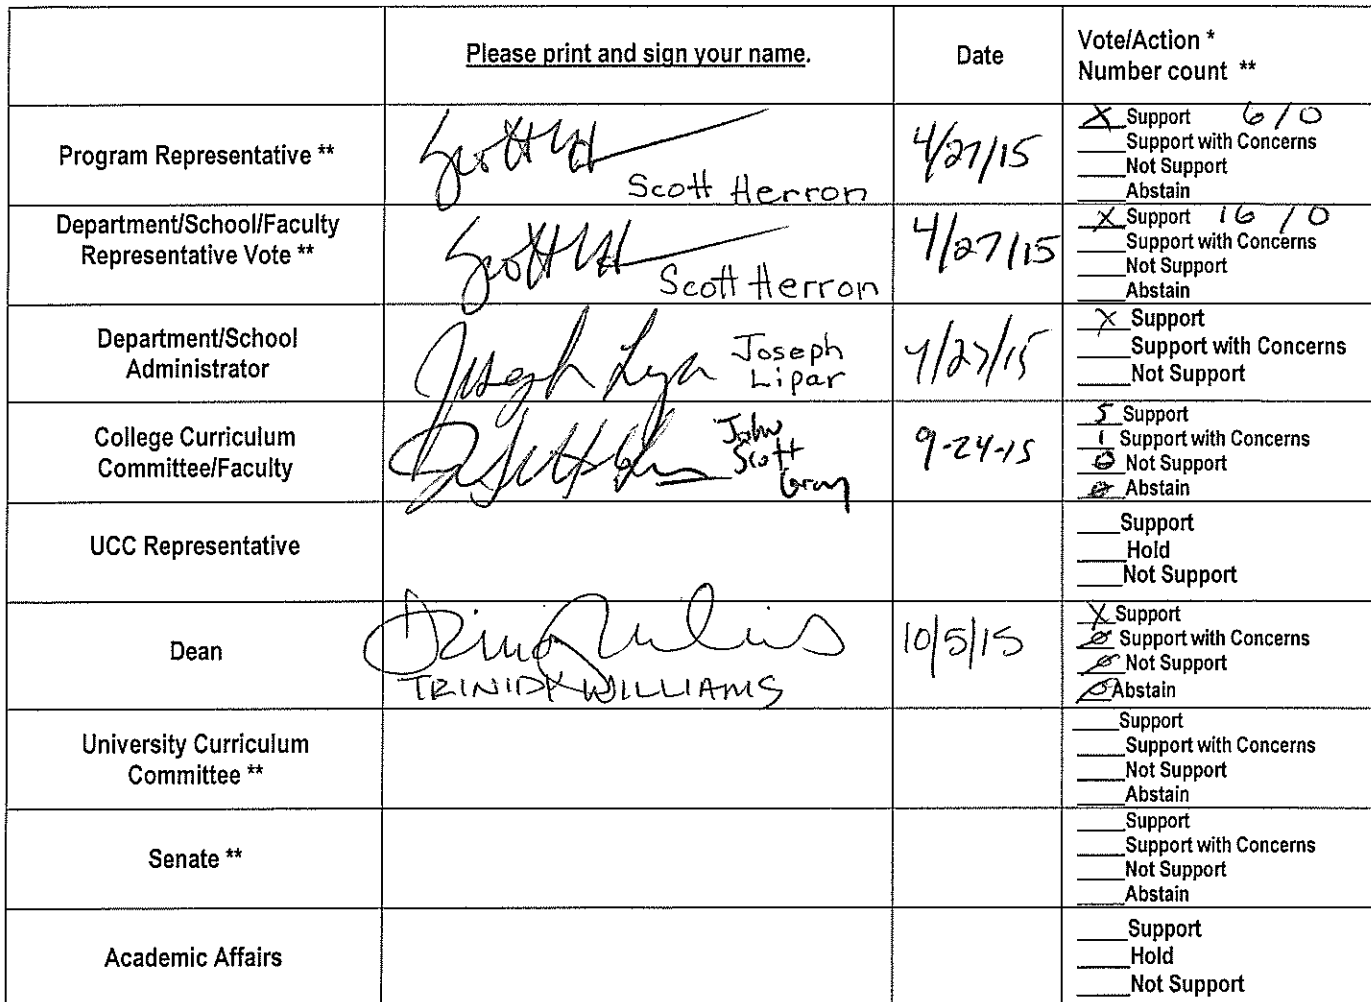 Please print and sign your name.
Date
Vote/Action *
Number count **
Program Representative **
Scott Herron
4/27/15
X Support 6/0
___Support with Concerns
___Not Support
___Abstain
Department/School/Faculty
Representative Vote **
Scott Herron
4/27/15
X Support 16/0
___Support with Concerns
___Not Support
___Abstain
Department/School
Administrator
Joseph
Lipar
4/27/15
X Support
___Support with Concerns
___Not Support
College Curriculum
Committee/Faculty
John
Scott
Gray
9-24-15
5 Support
1 Support with Concerns
0 Not Support
0 Abstain
UCC Representative
___Support
___Hold
___Not Support
Dean
TRINIDY WILLIAMS
10/5/15
X Support
0 Support with Concerns
0 Not Support
0 Abstain
University Curriculum
Committee **
___Support
___Support with Concerns
___Not Support
___Abstain
Senate **
___Support
___Support with Concerns
___Not Support
___Abstain
Academic Affairs
___Support
___Hold
___Not Support